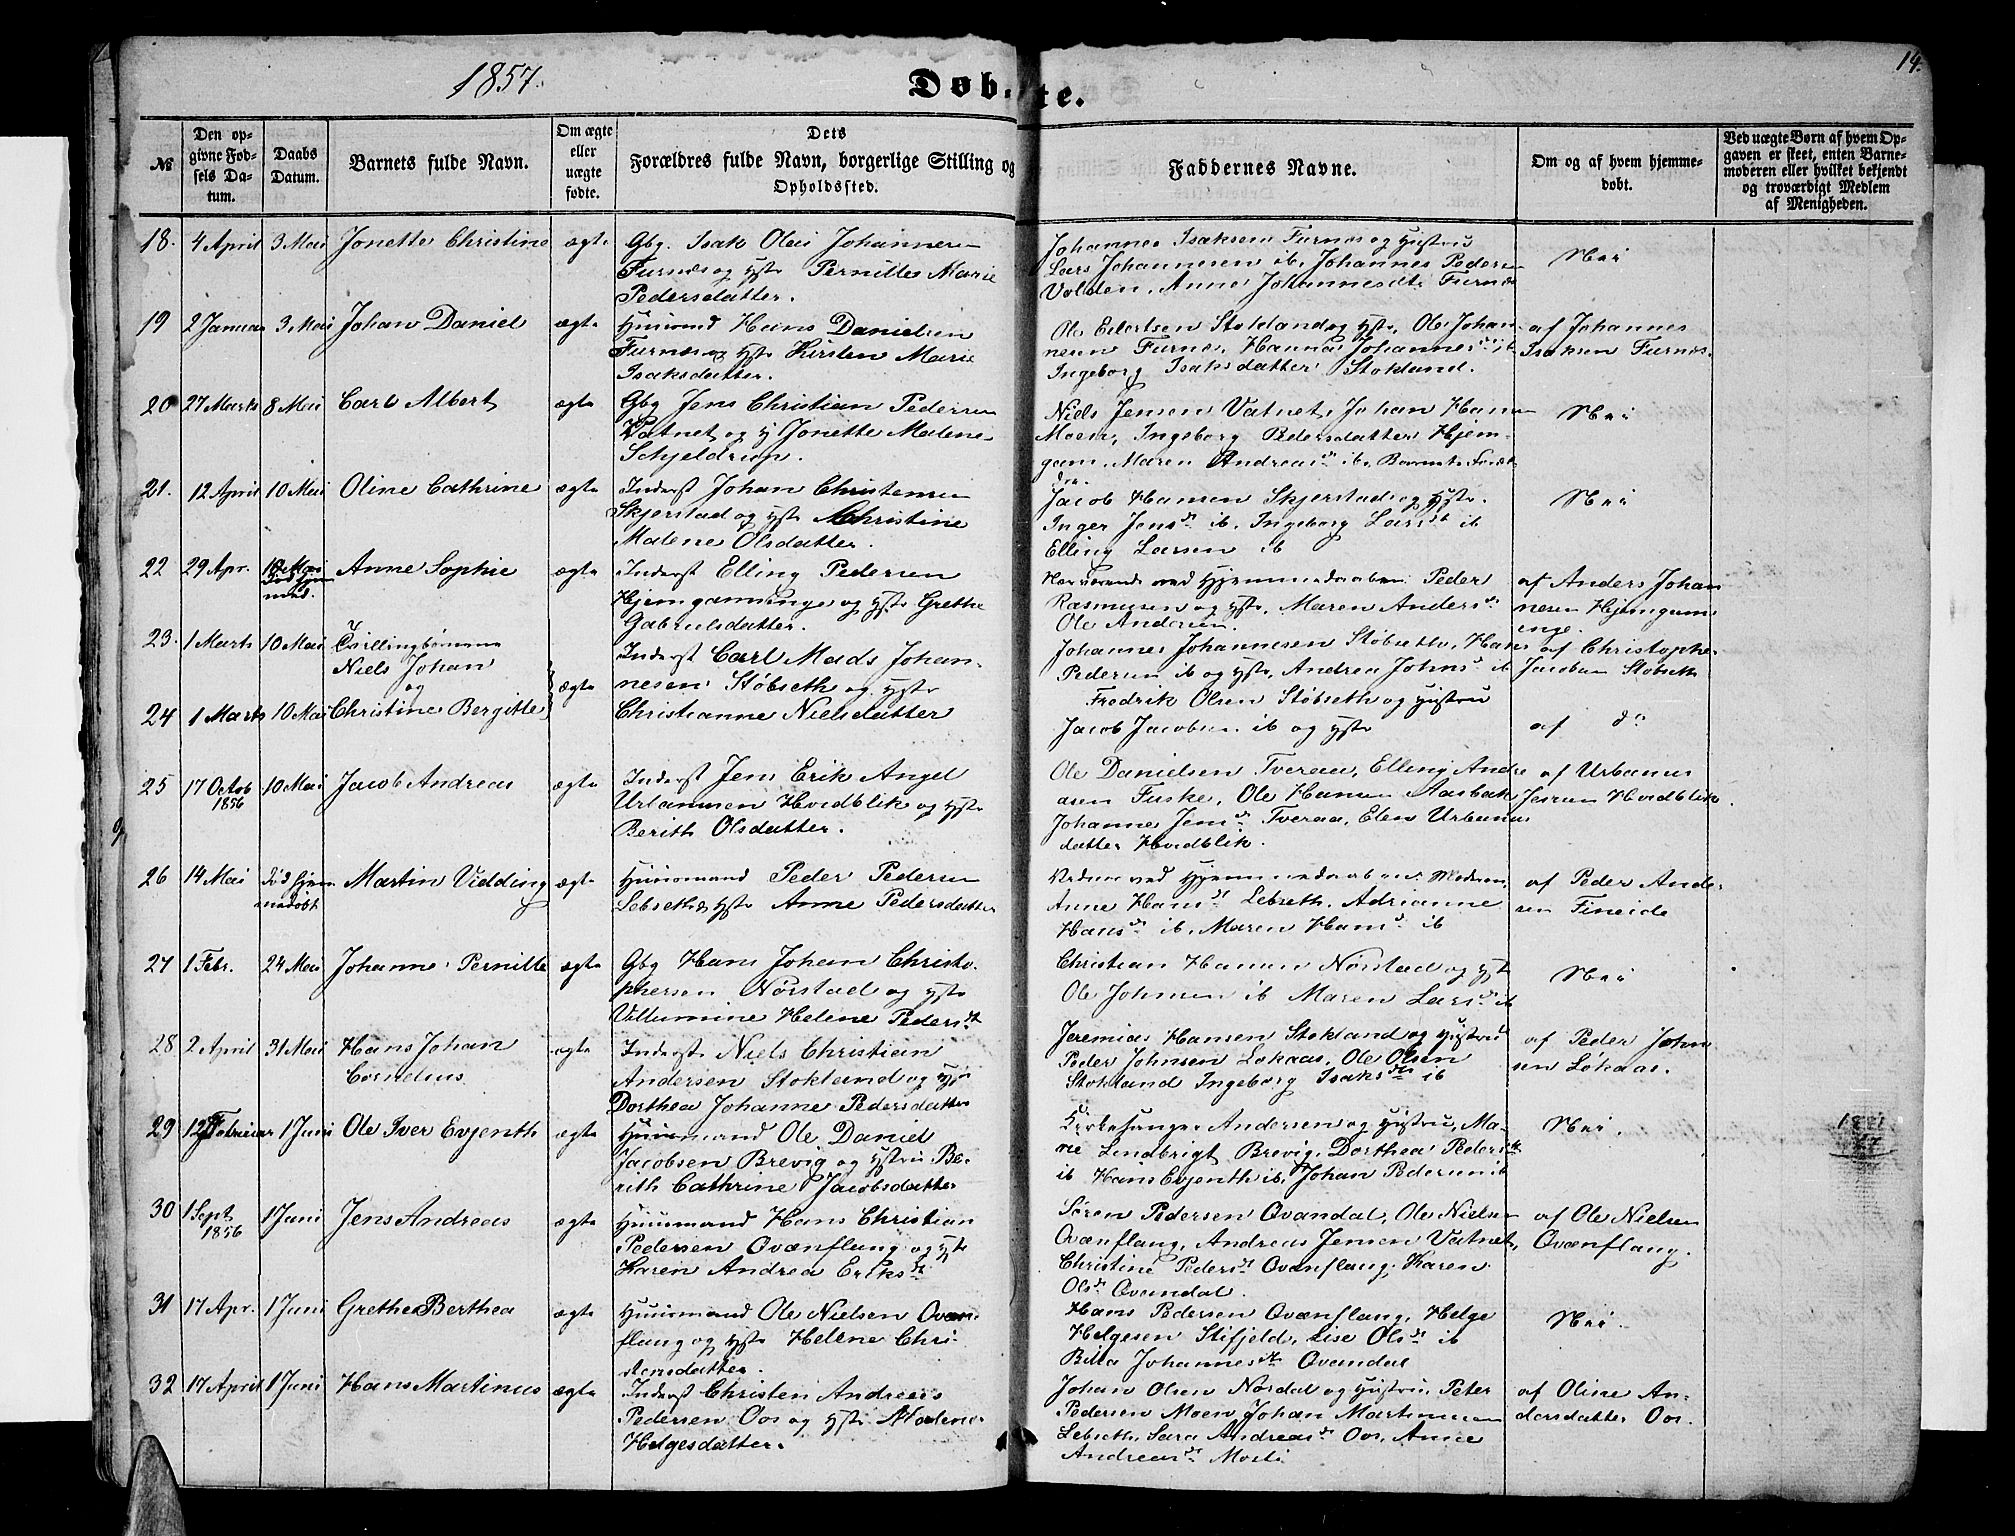 1857.
Døbte.
14.
№
Den opgivne Fødsels Datum.
Daabs Datum.
Barnets fulde Navn.
Om ægte eller uægte fødte.
Dets Forældres fulde Navn, borgerlige Stilling og Opholdssted.
Faddernes Navne.
Om og af hvem hjemmedøbt.
Ved uægte Børn af hvem Opgaven er skeet, enten Barnemoderen eller hvilket bekjendt og troværdigt Medlem af Menigheden.
18. 4 April 3 Mai Jonette Christine ægte Gbg. Isak Olai Johannesen
Furnes og Hstr Pernille Marie
Pedersdatter.
Johannes Isaksen Furnes og Hustru
Lars Johannesen ib, Johannes Pedersen
Volden, Anne Johannesdt Furnes
Nei
19 2 Januar 3 Mai Johan Daniel ægte Huusmd Hans Danielsen
Furnes og Hstr Kirsten Marie
Isaksdatter.
Ole Eilertsen Stokland og Hstr, Ole Johan-
nesen Furnes, Hanna Johannesdtr ib
Ingeborg Isaksdatter Stokland.
af Johannes
Isaksen Furnes.
20 27 Marts 8 Mai Carl Albert ægte Gbg Jens Christian Pedersen
Vatnet og H Jonette Malene
Schjeldrup.
Niels Jensen Vatnet, Johan Hansen
Moen, Ingeborg Pedersdatter Hjem-
gam, Maren Andreasdt ib, Barnets Foræl-
dre.
Nei
21. 12 April 10 Mai Oline Cathrine ægte Inderst Johan Christensen
Skjerstad og Hstr Christine
Malene Olsdatter.
Jacob Hansen Skjerstad og Hstr.
Inger Jensdt ib, Ingeborg Larsdt ib
Elling Larsen ib
Nei
22 29 Apr. 10 Mai Anne Sophie ægte Inderst Elling Pedersen
Hjemgamminge og Hstr Grethe
Gabrielsdatter.
Nærværende ved Hjemmedaaben: Peder
Rasmusen og Hstr, Maren Andersdt
Ole Andersen.
af Anders Johan
nesen Hjemgam-
inge.
23. 1 Marts 10 Mai Tvillingbørnene
Niels Johan
og
ægte Inderst Carl Mads Johan-
nesen Støbseth og Hstr
Johannes Johannesen Støbseth, Hans
Pedersen ib og Hstr, Andrea Johnsdt ib
af Christophe-
Jacobsen Støbseth
24 1 Marts 10 Mai Christine Bergitte Christianne Nielsdatter
Fredrik Olsen Støbseth og Hustru
Jacob Jacobsen ib og Hstr
af do
25 17 Octob 1856 10 Mai Jacob Andreas ægte Inderst Jens Erik Angel
Urbanusen Hvidblik og Hstr
Berith Olsdatter.
Ole Danielsen Tveraa, Elling Andre
asen Fuske, Ole Hansen Aasbak
Johanne Jensdt Tveraa, Elen Urbanus
datter Hvidblik.
af Urbanus
Jensen Hvidblik.
26 14 Mai Død hjem
medøbt Martin Vidding ægte Huusmand Peder Pedersen
Lebseth og Hstr Anne Pedersdatter
Vidner ved Hjemmedaaben: Moderen,
Anne Hansdt Lebseth, Adrianne
Hansdt ib, Maren Hansdt ib
af Peder Ande-
sen Fineide
27 1 Febr. 24 Mai Johanne Pernille ægte Gbg Hans Johan Christo-
phersen Nørstad og Hstr
Villumine Helene Pedersdt
Christian Hansen Nørstad og Hstr
Ole Johnsen ib Maren Larsdt ib
Nei
28 2 April 31 Mai Hans Johan
Cornelius
ægte Inderst Niels Christian
Andersen Stokland og Hstr
Dorthea Johanne Pedersdatter
Jeremias Hansen Stokland og Hustru
Peder Johnsen Løkaas, Ole Olsen
Stokland Ingeborg Isaksdtr ib
af Peder John
sen Løkaas.
29 12 Februar 1 Juni Ole Iver Evjenth ægte Huusmand Ole Daniel
Jacobsen Brevig og Hstru Be-
rith Cathrine Jacobsdatter
Kirkesanger Andersen og Hustru, Ma-
rie Lindbrigt Brevig, Dorthea Pedersdt
ib Hans Evjenth ib, Johan Pedersen ib
Nei.
30 1 Sept 1856 1 Juni Jens Andreas ægte Huusmand Hans Christian
Pedersen Qvænflaug og Hstr
Karen Andrea Eriksdt
Søren Pedersen Qvandal, Ole Nielsen
Qvænflaug, Andreas Jensen Vatnet,
Christine Pedersdt Qvænflaug, Karen
Olsdt Qvandal.
af Ole Nielsen
Qvænflaug.
31 17 Apr. 1 Juni Grethe Berthea ægte Huusmand Ole Nielsen Qvæn-
flaug og Hstr Helene Chri-
stensdatter.
Hans Pedersen Qvænflaug, Helge
Helgesen Stifjeld, Lise Olsdt ib
Bilta Johannesdt Qvandal
Nei.
32 17 April 1 Juni Hans Martinus ægte Inderst Christen Andreas
Pedersen Oos og Hstr Malene
Helgesdatter.
Johan Olsen Nordal og Hustru, Peter
Pedersen Moen, Johan Martinusen
Lebseth, Sara Andreasdt Oos, Anne
Andreasdt Mosti
af Oline An-
dersdatter Oos.